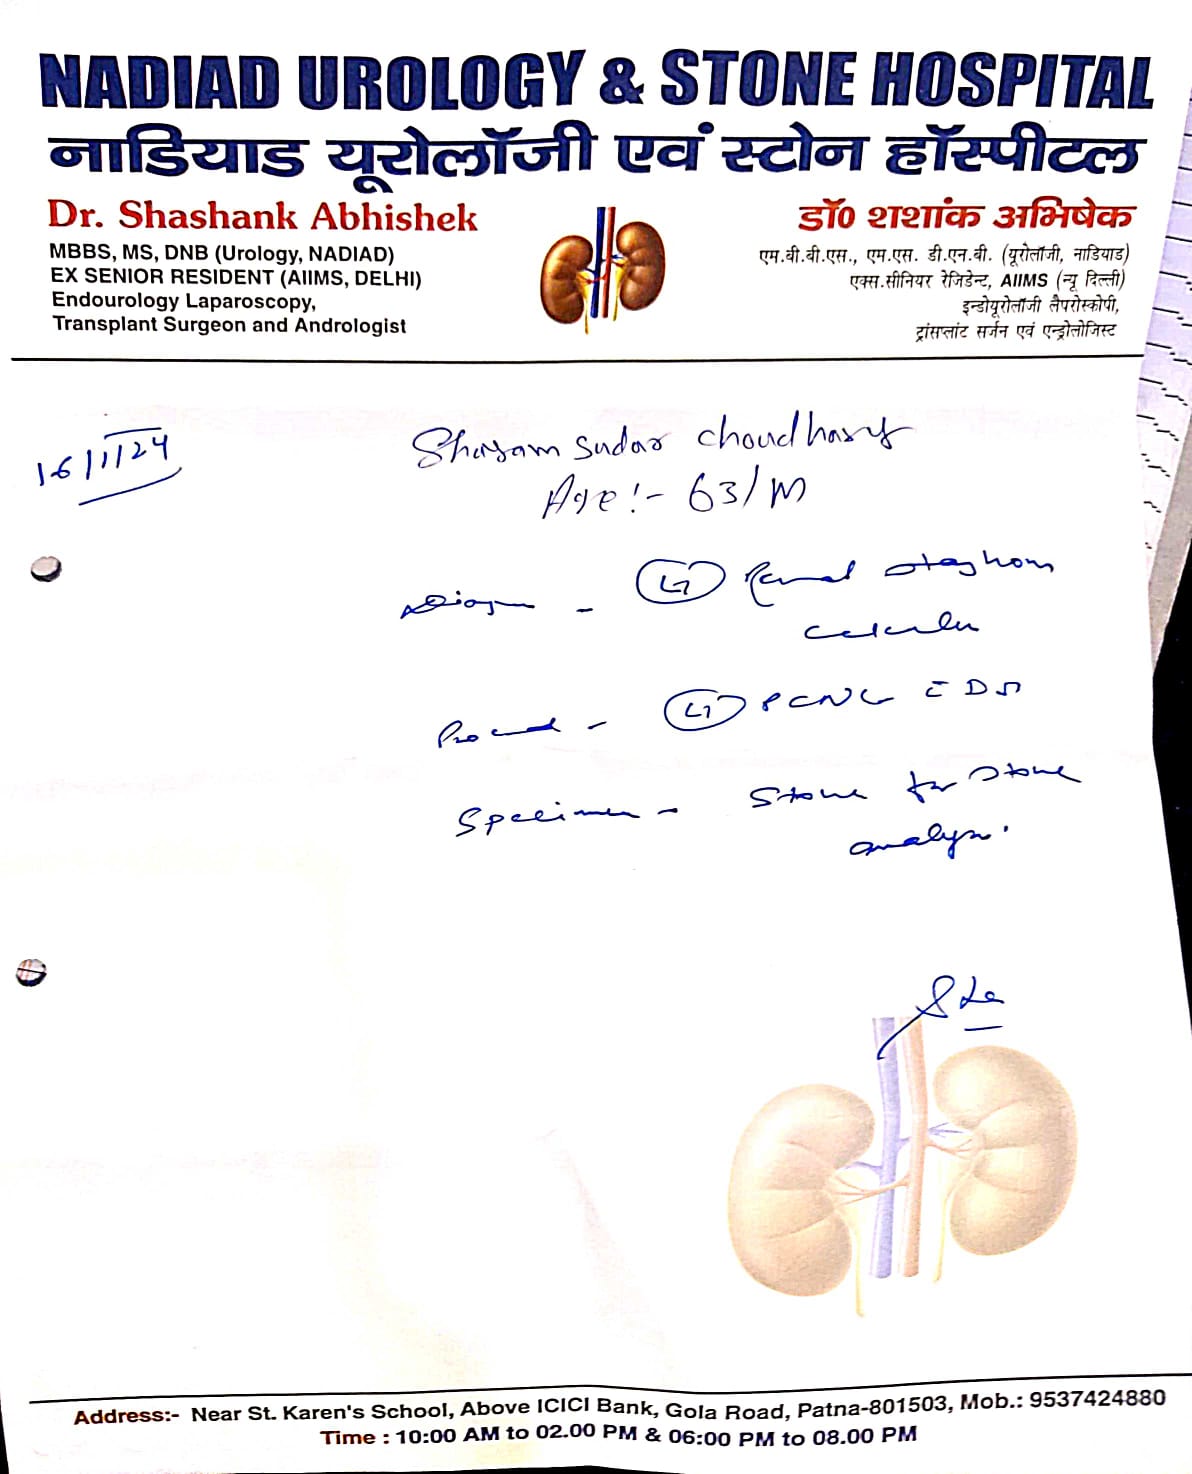 NADIAD UROLOGY & STONE HOSPITAL
नाडियाड यूरोलॉजी एवं स्टोन हॉस्पीटल
Dr. Shashank Abhishek
MBBS, MS, DNB (Urology, NADIAD)
EX SENIOR RESIDENT (AIIMS, DELHI)
Endourology Laparoscopy,
Transplant Surgeon and Andrologist
डॉ० शशांक अभिषेक
एम.बी.बी.एस., एम.एस. डी.एन.बी. (यूरोलॉजी, नाडियाड)
एक्स.सीनियर रेजिडेन्ट, AIIMS (न्यू दिल्ली)
इन्डोयूरोलॉजी लैपरोस्कोपी,
ट्रांसप्लांट सर्जन एवं एन्ड्रोलोजिस्ट
16/1/24
Shayam sudar choudhary
Age:- 63/M
- Renal staghorn
Specimen - Stone for Stone
Address:- Near St. Karen's School, Above ICICI Bank, Gola Road, Patna-801503, Mob.: 9537424880
Time : 10:00 AM to 02.00 PM & 06:00 PM to 08.00 PM